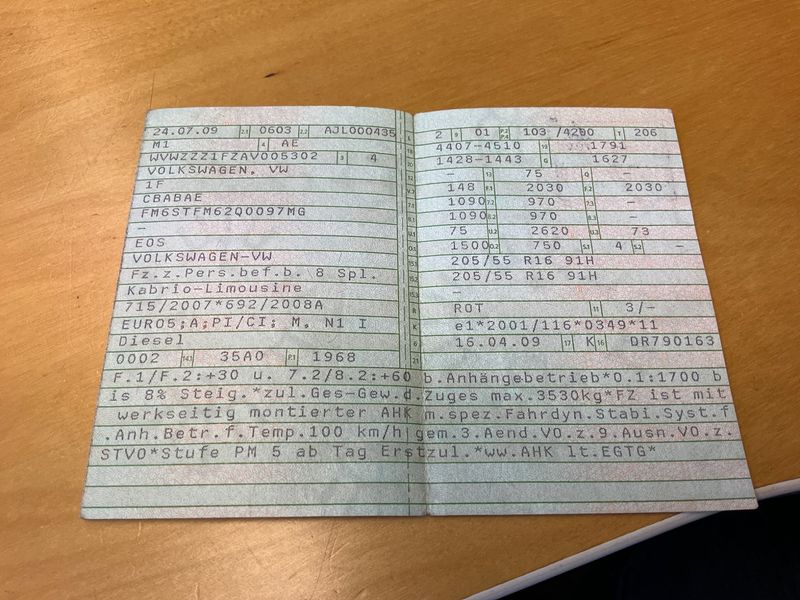 24.07.09 2.1 0603 2.2 AJL000435
M1 4 AE
WVWZZZ1FZAV005302 3 4
VOLKSWAGEN, VW
1F
CBABAE
FM6STFM62Q0097MG
–
EOS
VOLKSWAGEN-VW
Fz.z.Pers.bef.b. 8 Spl.
Kabrio-Limousine
715/2007*692/2008A
EURO5;A;PI/CI; M, N1 I
Diesel
0002 14.1 35A0 P.1 1968
L 2 9 01 P.2 P.4 103 /4200 T 206
4407-4510 19 1791
20 1428-1443 G 1627
12 – 13 75 Q –
V.7 148 F.1 2030 F.2 2030
7.1 1090 7.2 970 7.3 –
8.1 1090 8.2 970 8.3 –
U.1 75 U.2 2620 U.3 73
O.1 1500 O.2 750 S.1 4 S.2 –
15.1 205/55 R16 91H
15.2 205/55 R16 91H
15.3 –
R ROT 11 3/–
K e1*2001/116*0349*11
6 16.04.09 17 K 16 DR790163
21
F.1/F.2:+30 u. 7.2/8.2:+60 b.Anhängebetrieb*O.1:1700 b
is 8% Steig.*zul.Ges-Gew.d.Zuges max.3530kg*FZ ist mit
werkseitig montierter AHK m.spez.Fahrdyn.Stabi.Syst.f
.Anh.Betr.f.Temp.100 km/h gem.3.Aend.VO.z.9.Ausn.VO.z.
STVO*Stufe PM 5 ab Tag Erstzul.*ww.AHK lt.EGTG*